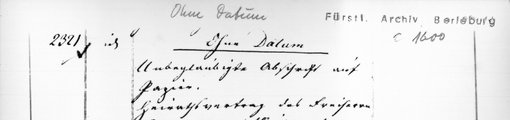 Ohne Datum
Fürstl. Archiv Berleburg
c 1600
2321 id Ohne Datum
Unbeglaubigte Abschrift auf
Papier.
Heirathsvertrag des Freiherrn